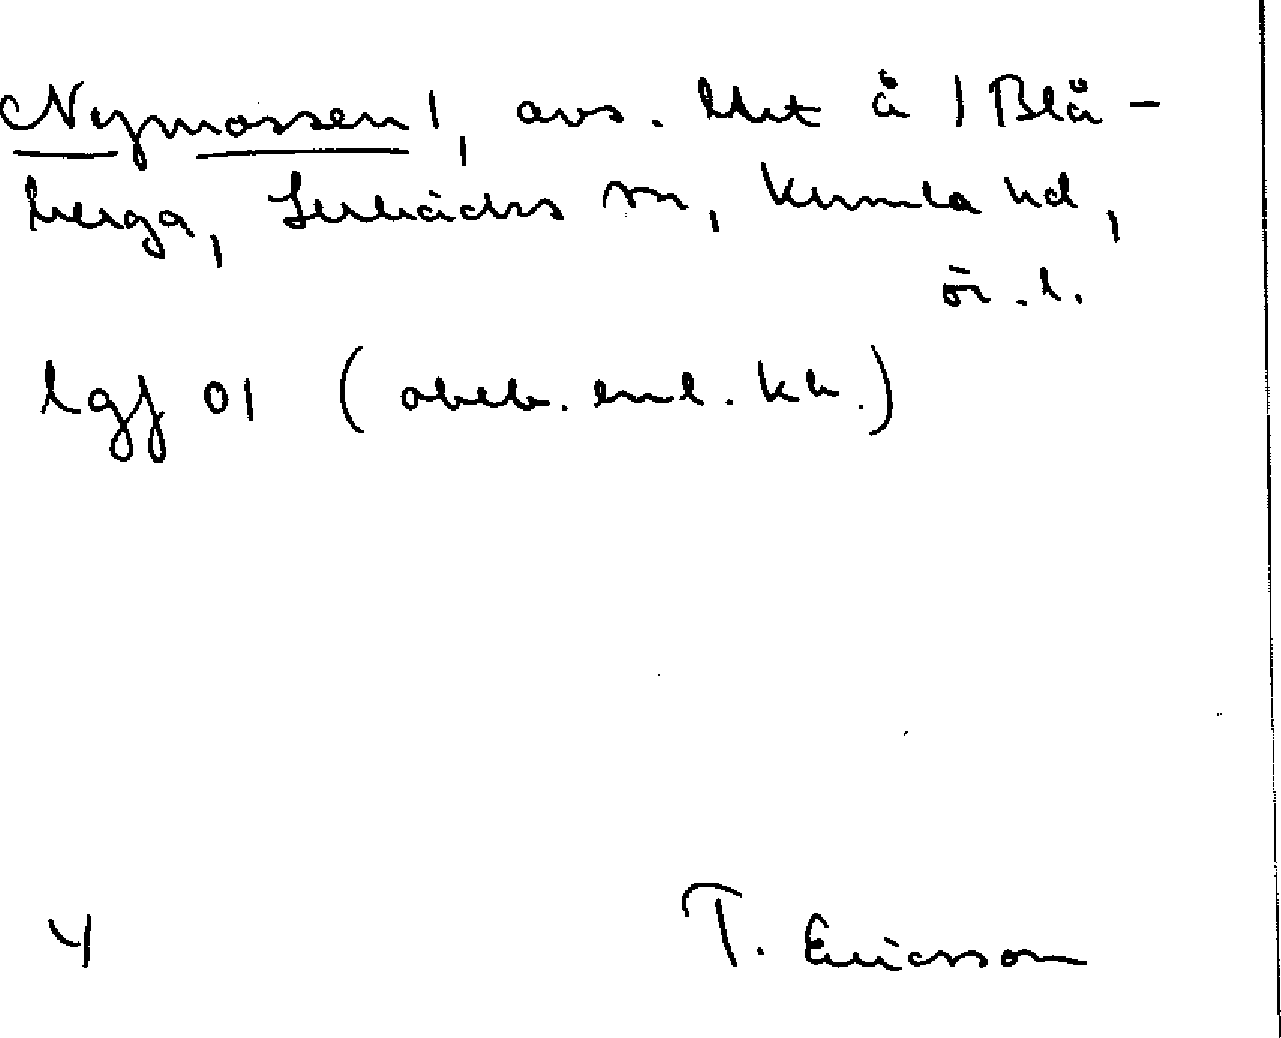 Nymossen|, avs. tht å | Blå-
berga, Lerbäcks sn, Kumla hd,
ör. l.
lgf 01 (obeb. enl. kh.)
4 T. Ericsson